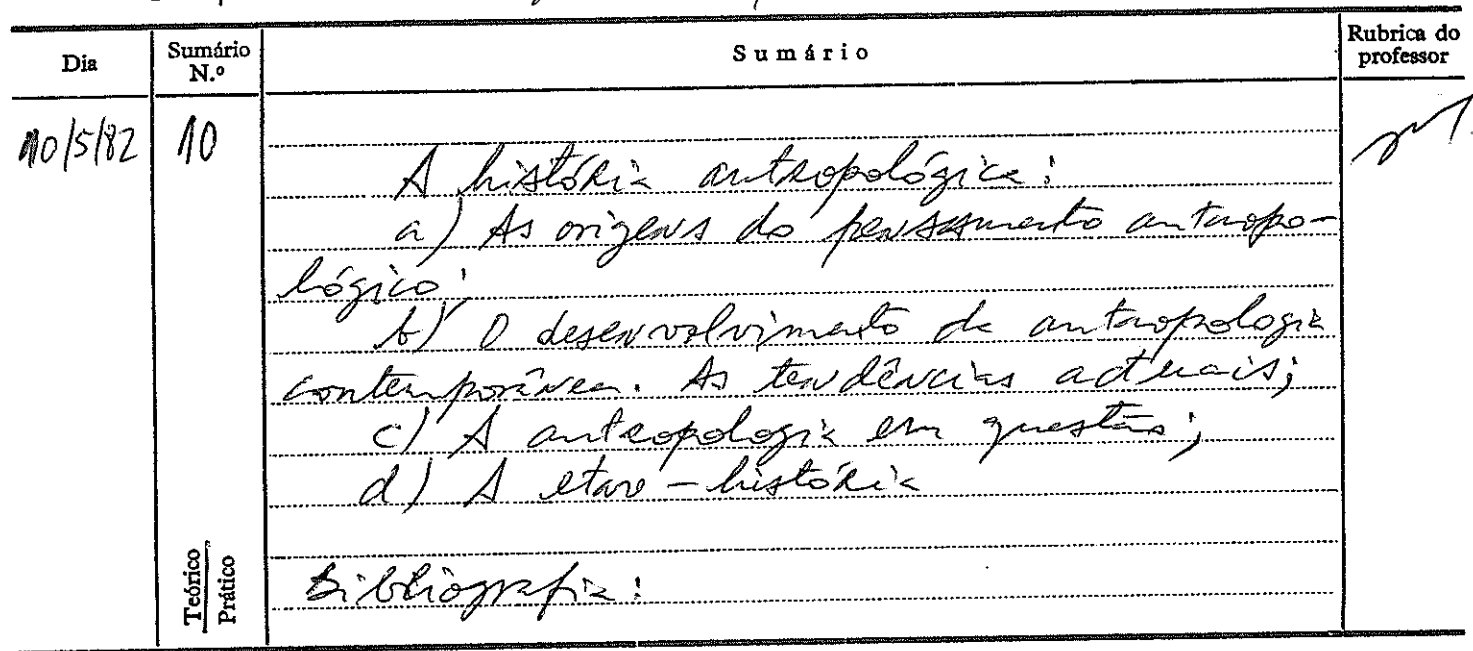 Dia
Sumário N.º
Sumário
Rubrica do professor
10/5/82
10
A história antropológica:
a) As origens do pensamento antropo-
lógico;
b) O desenvolvimento da antropologia
contemporânea. As tendências actuais;
c) A antropologia em questão;
d) A etno-história
Teórico
Prático
Bibliografia: